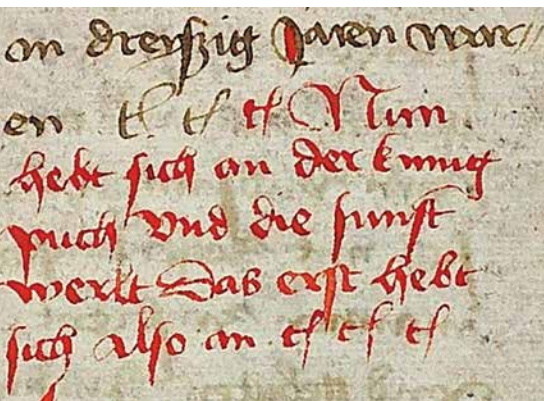 an dreyſzig Jaren war//
en tſ tſ tſ Nun
hebt ſich an der kunig
puch vnd die funft
werlt Das erſt hebt
ſich alſo an tſ tſ tſ